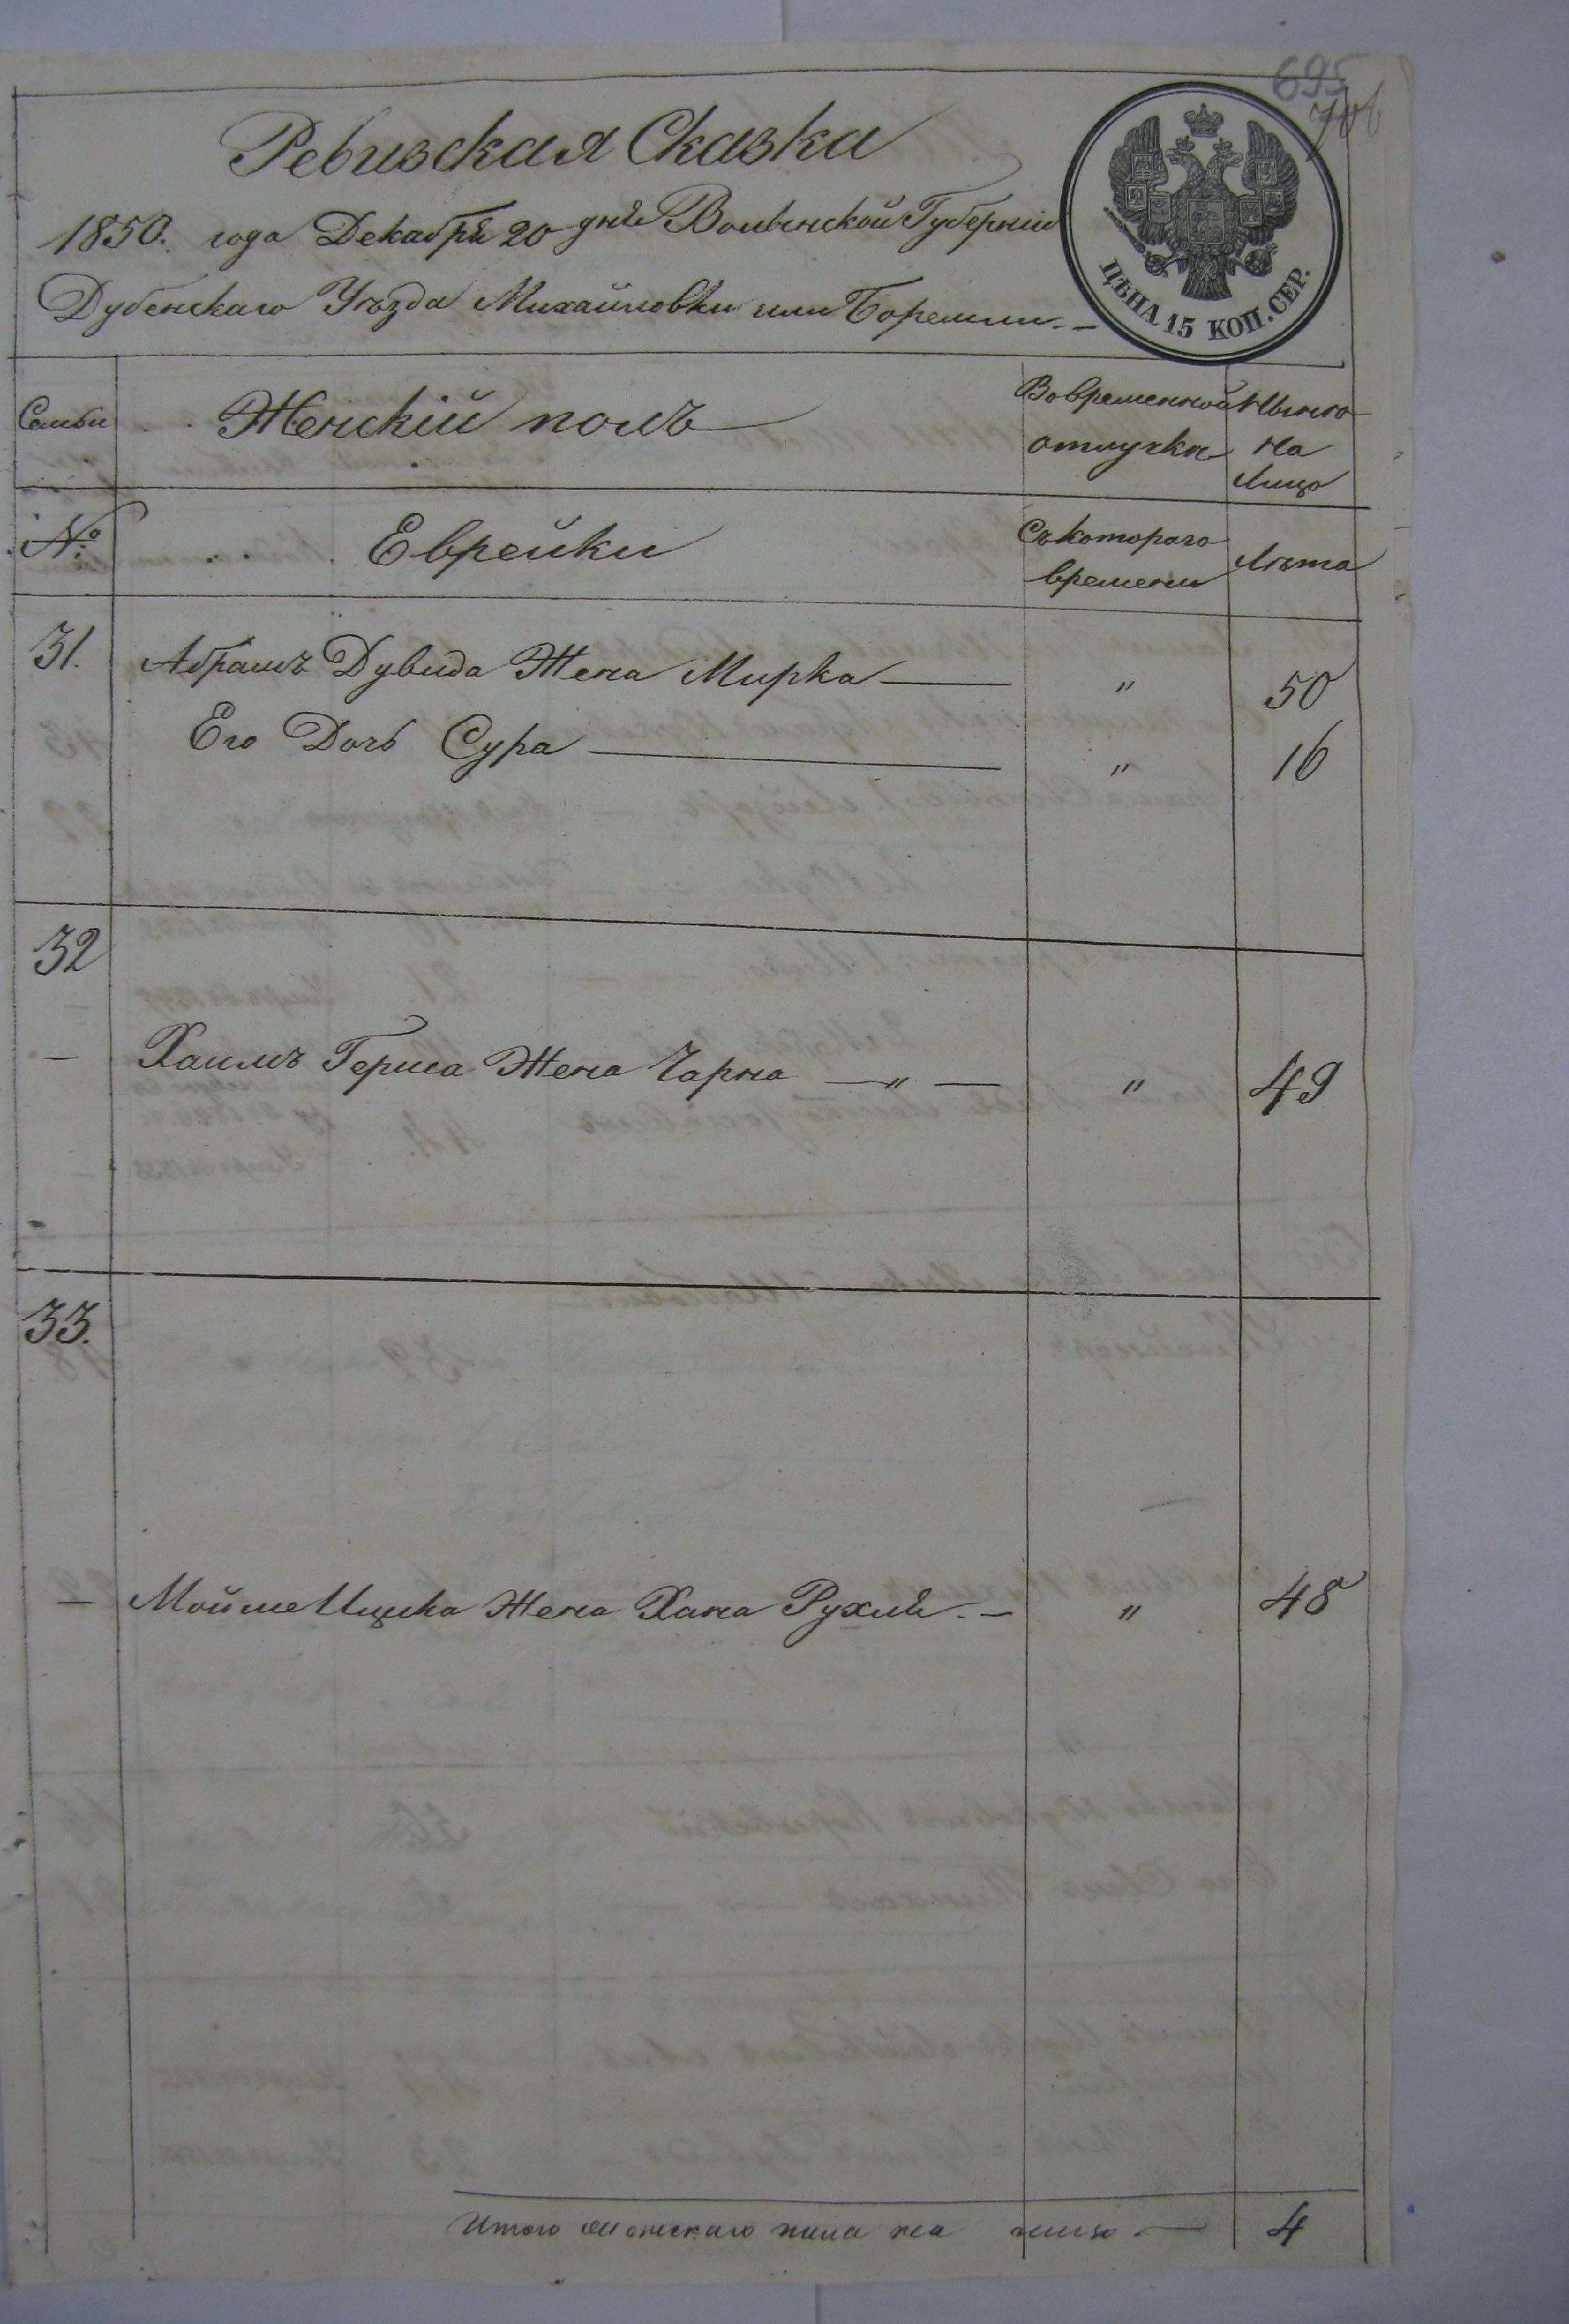 695
706
Ревизская Сказка
1850. года Декабря 20 дня Волынской Губерніи
Дубенскаго Уѣзда Михайловки или Боремли. —
ЦѢНА 15 КОП. СЕР.
Семьи Женскій полъ Во временной отлучкѣ Нынѣ на Лицо
№ Еврейки Съ котораго времени Лѣта
31. Абрамъ Дувида Жена Мирка — " 50
Его Дочь Сура — " 16
32
— Хаимъ Герша Жена Чарна — " — " 49
33.
— Мойше Ицика Жена Хана Рухля. — " 48
Итого женскаго пола на лицо. — 4